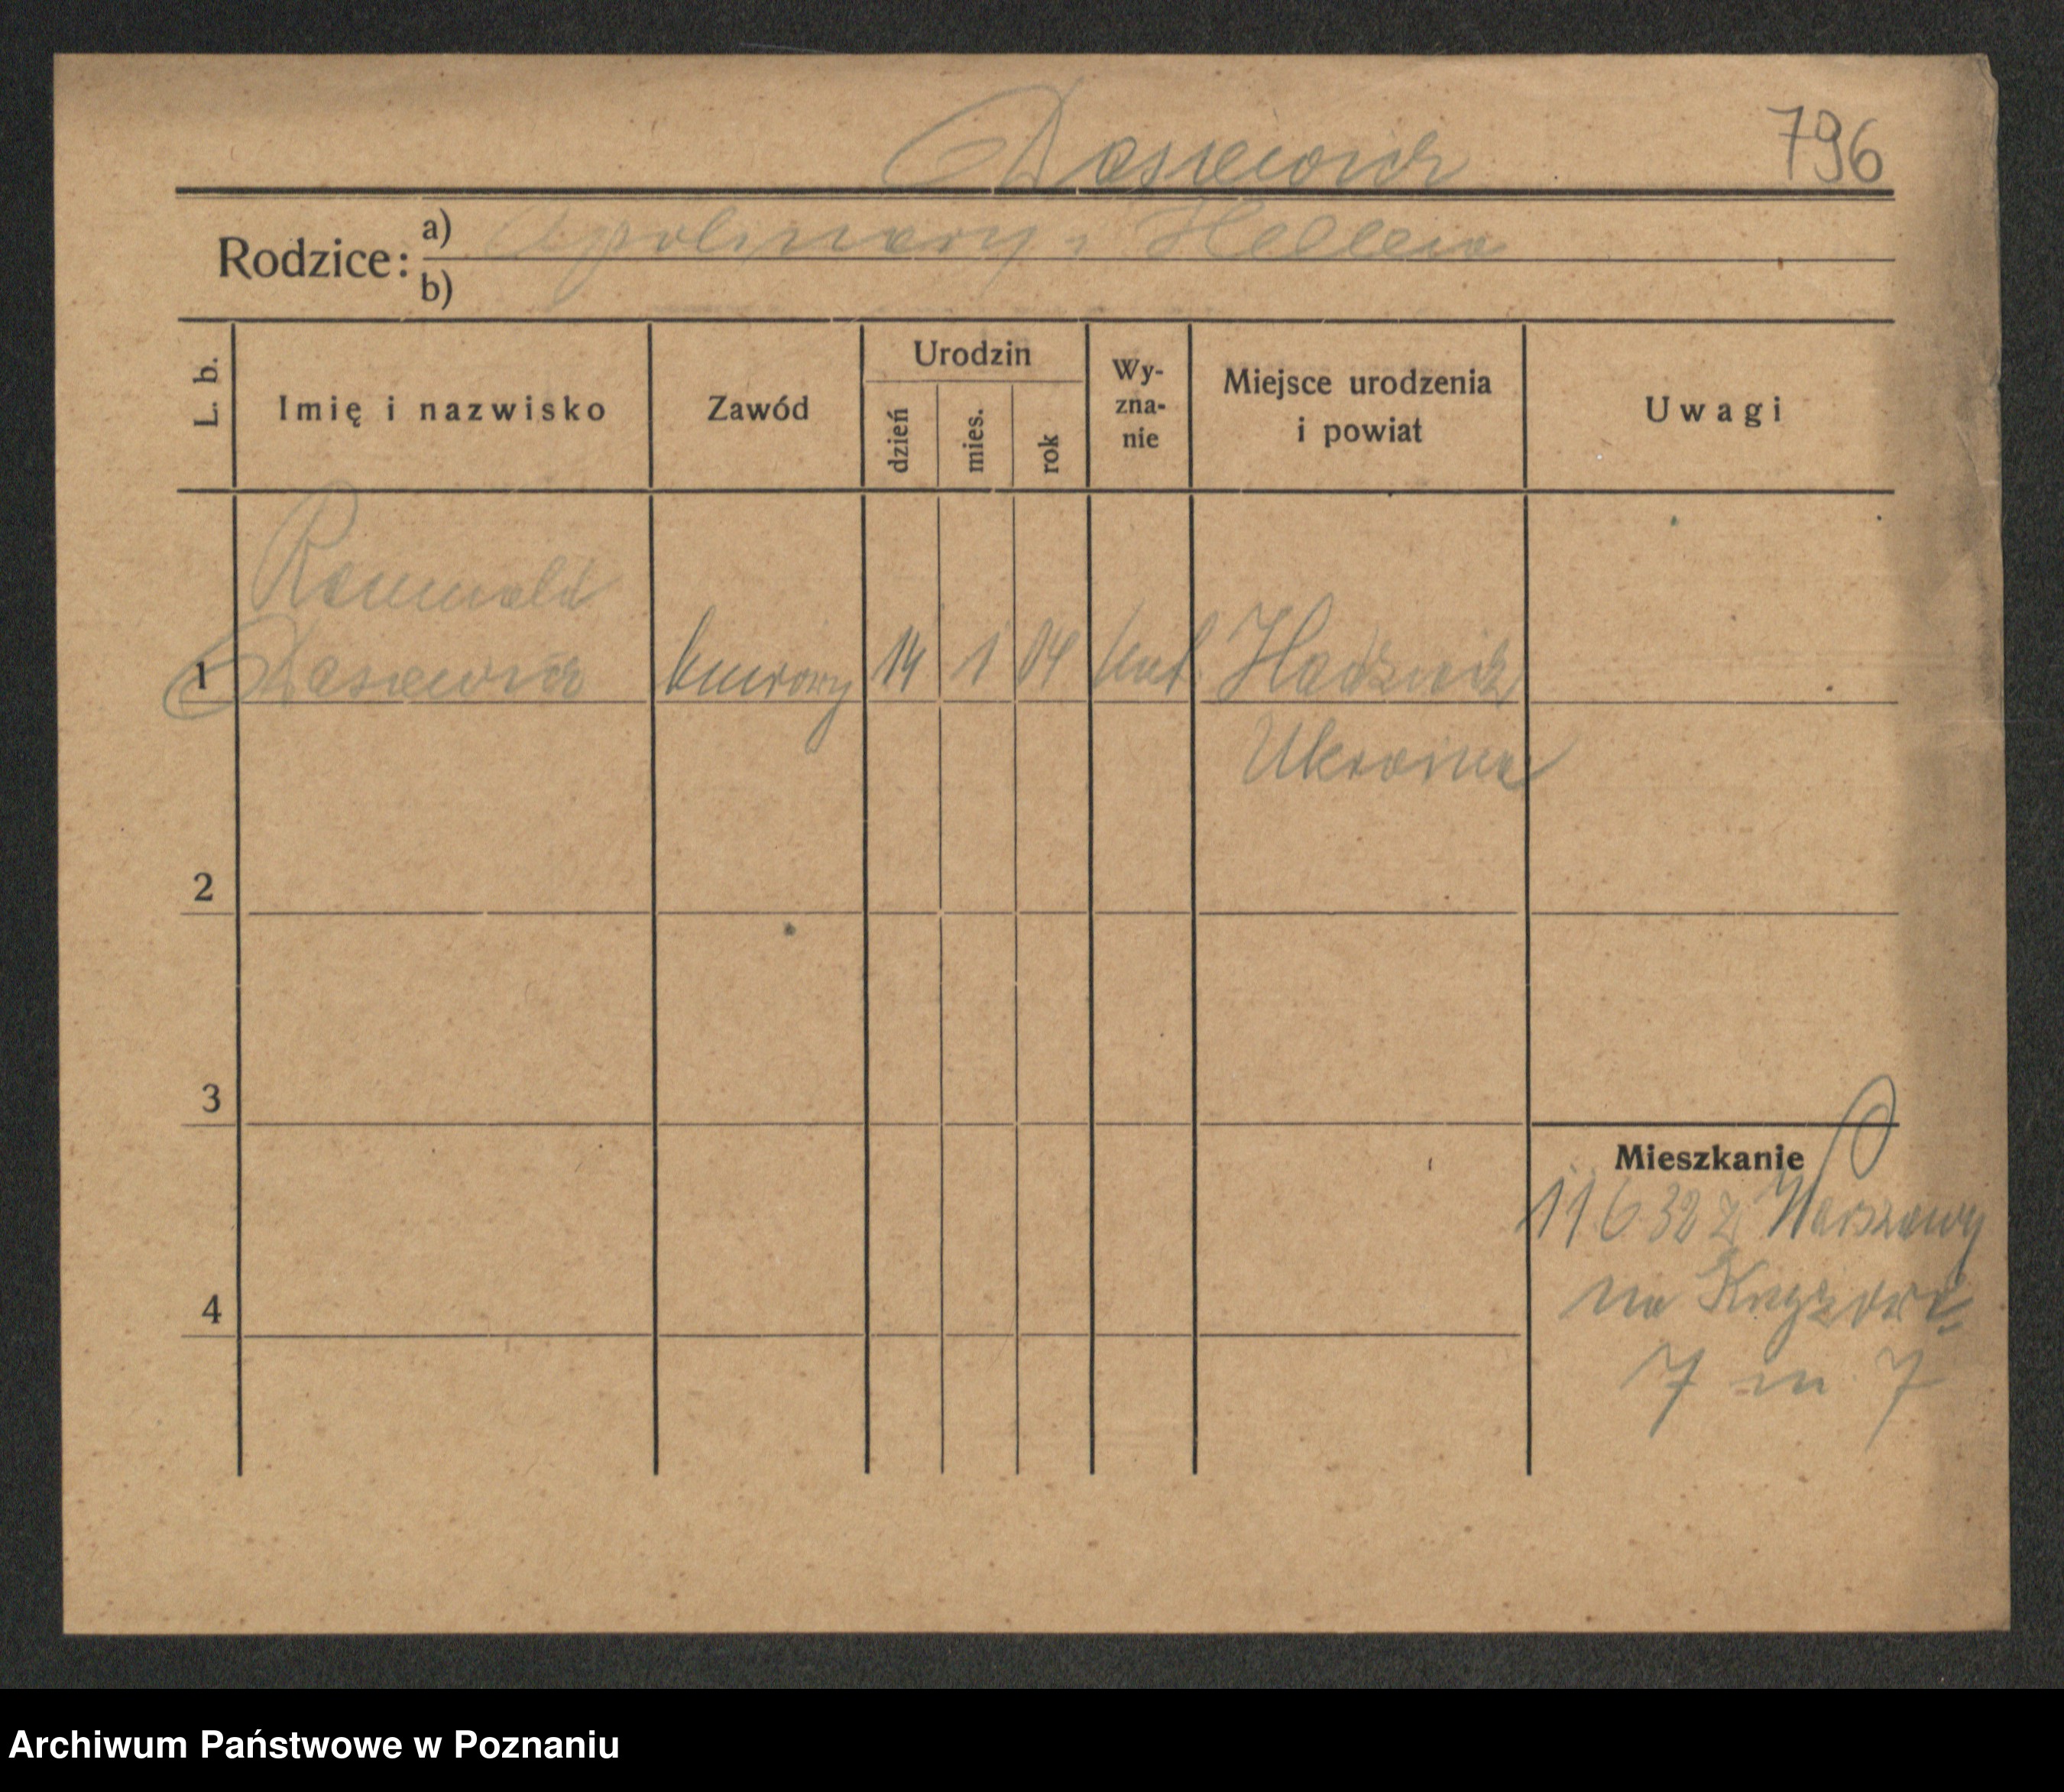 Daszewicz
796
Rodzice: a) Apolinary i Hellena
b)
L. b.
Imię i nazwisko
Zawód
Urodzin
dzień
mies.
rok
Wy-
zna-
nie
Miejsce urodzenia
i powiat
Uwagi
Romuald
1 Daszewicz 14 1 04 kat.
Ukraina
2
3
Mieszkanie
11 6 32 z Warszawy
na
4
7 m 7
Archiwum Państwowe w Poznaniu